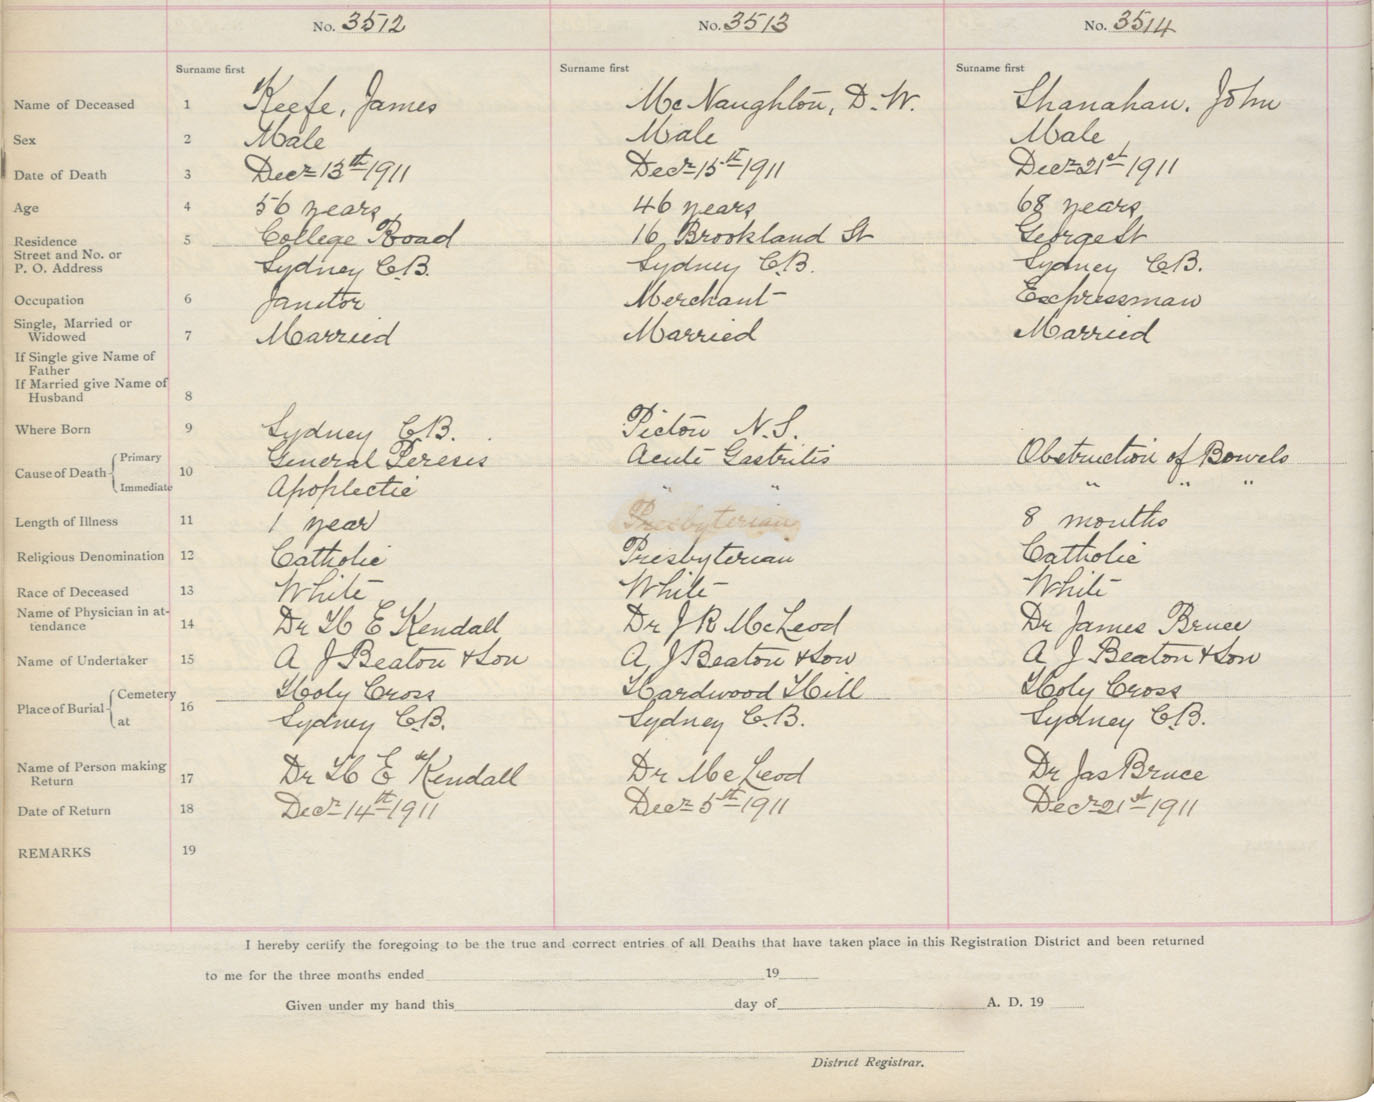 No. 3512 No. 3513 No. 3514
Surname first Surname first Surname first
Name of Deceased 1 Keefe, James McNaughton, D. W. Shanahan, John
Sex 2 Male Male Male
Date of Death 3 Decr 13th 1911 Decr 15th 1911 Decr 21st 1911
Age 4 56 years 46 years 68 years
Residence 5 College Road 16 Brookland St George St
Street and No. or
P. O. Address Sydney C.B. Sydney C.B. Sydney C.B.
Occupation 6 Janitor Merchant Expressman
Single, Married or
Widowed 7 Married Married Married
If Single give Name of
Father
If Married give Name of
Husband 8
Where Born 9 Sydney C.B. Pictou N.S.
Cause of Death Primary 10 General Peresis Acute Gastritis Obstruction of Bowels
Immediate Apoplectic " " " " "
Length of Illness 11 1 year Presbyterian 8 months
Religious Denomination 12 Catholic Presbyterian Catholic
Race of Deceased 13 White White White
Name of Physician in at-
tendance 14 Dr H E Kendall Dr J R McLeod Dr James Bruce
Name of Undertaker 15 A J Beaton & Son A J Beaton & Son A J Beaton & Son
Place of Burial Cemetery 16 Holy Cross Hardwood Hill Holy Cross
at Sydney C.B. Sydney C.B. Sydney C.B.
Name of Person making
Return 17 Dr H E Kendall Dr McLeod Dr Jas Bruce
Date of Return 18 Decr 14th 1911 Decr 5th 1911 Decr 21st 1911
REMARKS 19
I hereby certify the foregoing to be the true and correct entries of all Deaths that have taken place in this Registration District and been returned
to me for the three months ended 19
Given under my hand this day of A. D. 19
District Registrar.